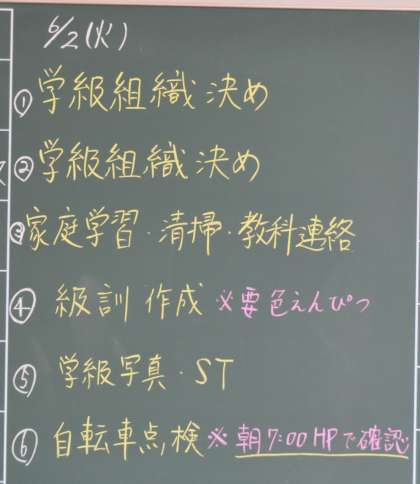 6/2(火)
①学級組織決め
②学級組織決め
③家庭学習・清掃・教科連絡
④級訓作成 ※要色えんぴつ
⑤学級写真・ST
⑥自転車点検※朝7:00HPで確認